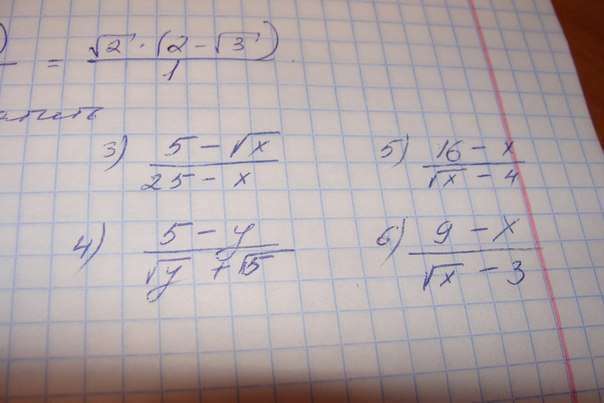 ) = √2 · (2 - √3) / 1
3) (5 - √x) / (25 - x)
5) (16 - x) / (√x - 4)
4) (5 - y) / (√y + √5)
6) (9 - x) / (√x - 3)